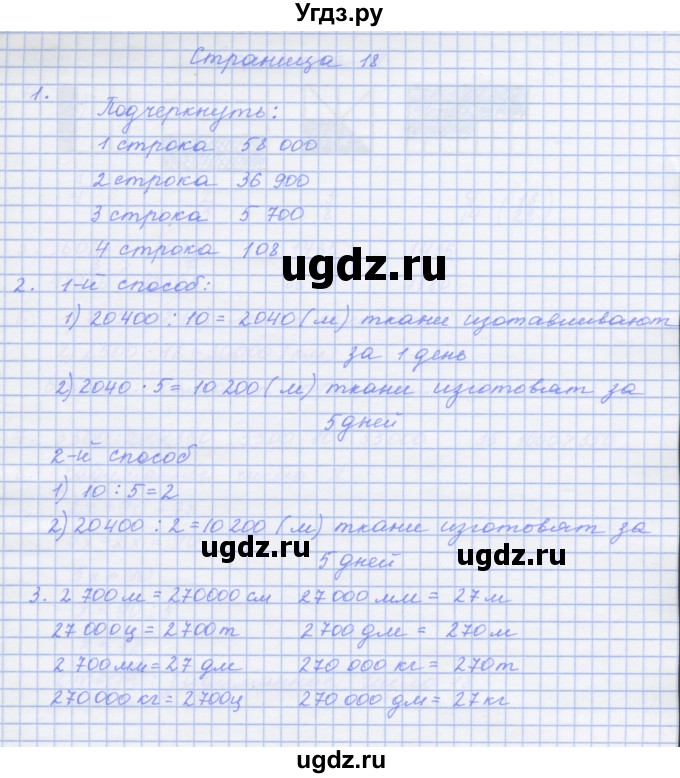 Угдз.ру
Страница 18
1.
Подчеркнуть:
1 строка 58 000
2 строка 36 900
3 строка 5 700
4 строка 108
ugdz.ru
2. 1-й способ:
1) 20 400 : 10 = 2040 (м) ткани изотавливают
за 1 день
2) 2040 · 5 = 10 200 (м) ткани изготовят за
5 дней
2-й способ
1) 10 : 5 = 2
2) 20 400 : 2 = 10 200 (м) ткани изготовят за
ugdz.ru
5 дней
ugdz.ru
3. 2 700 м = 270000 см 27 000 мм = 27 м
27 000 ц = 2700 т 2 700 дм = 270 м
2 700 мм = 27 дм 270 000 кг = 270 т
270 000 кг = 2700 ц 270 000 дм = 27 кг
ugdz.ru